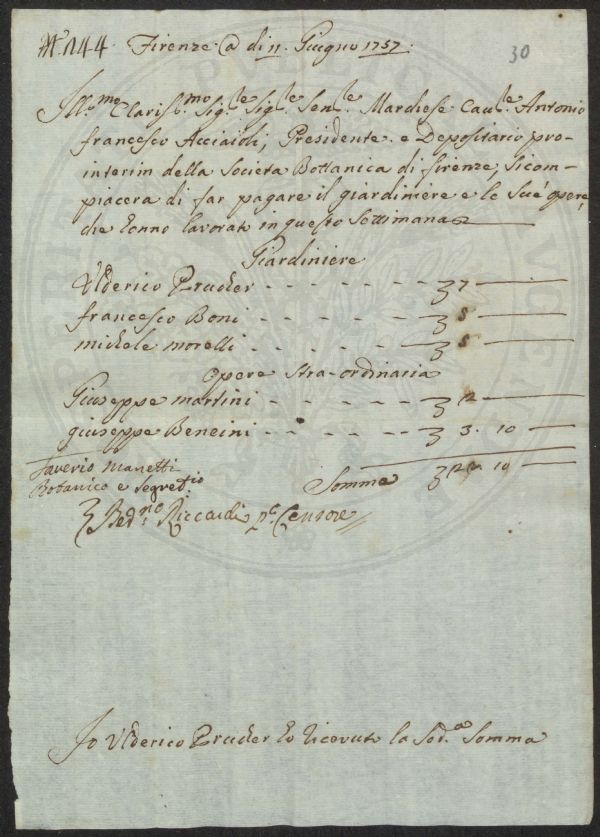 N.° 144. Firenze @ dì 11. Giugno 1757.
30
Ill.mo Clariss.mo Sig.le Sig.le Sen.le Marchese Cau.le Antonio
francesco Acciaioli, Presidente e Depositario pro-
interim della Società Bottanica di firenze, si com-
piacera di far pagare il giardiniere e le Sue opere,
che hanno lavorato in questo Settimana
Giardiniere
Ulderico Prucker - - - - - - 7 —
francesco Boni - - - - - —
michele morelli - - - - - —
Opere Stra-ordinaria
Giuseppe martini - - - - - —
giuseppe Bencini - - - - - 3. 10 —
Saverio Manetti
Botanico e Segret.io
Somma 10 —
Bed.no Riccardi p.e Censore
Io Ulderico Prucker ho riceuuto la Sod.a Somma